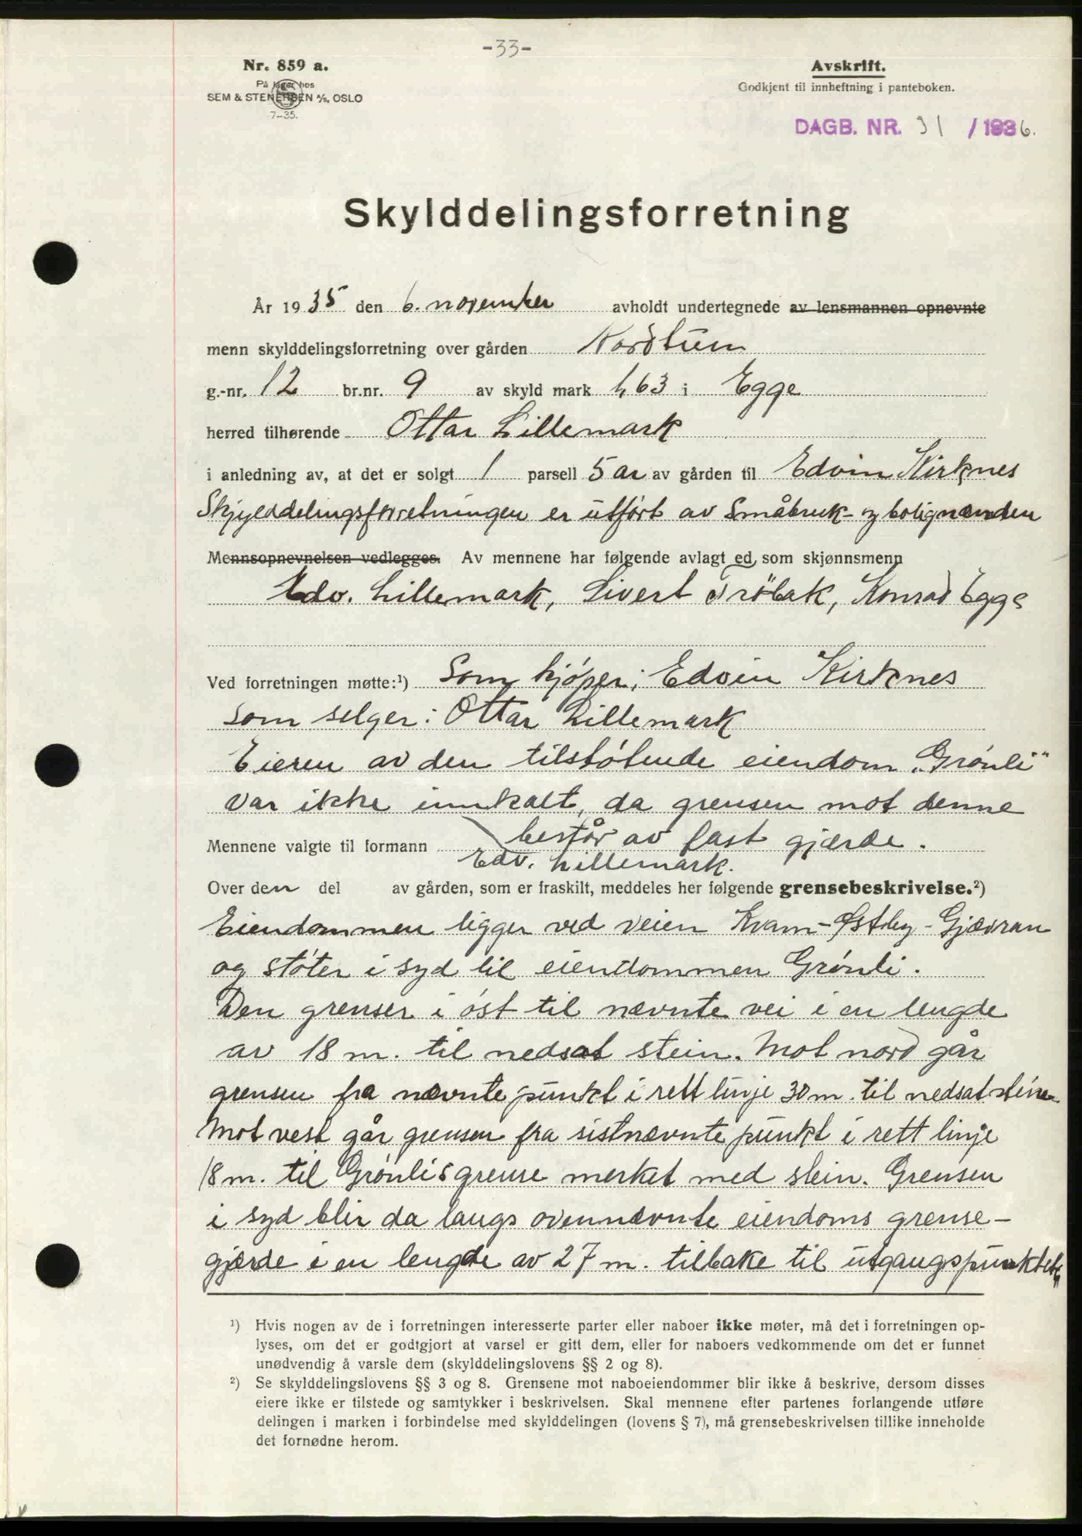 -33-
Nr. 859 a.
På lager hos
SEM & STENERSEN A/S, OSLO
7-35.
Avskrift.
Godkjent til innheftning i panteboken.
DAGB. NR. 31 / 1936.
Skylddelingsforretning
År 1935 den 6. november avholdt undertegnede av lensmannen opnevnte
menn skylddelingsforretning over gården Nordtun
g.-nr. 12 br.nr. 9 av skyld mark 1,63 i Egge
herred tilhørende Ottar Lillemark
i anledning av, at det er solgt 1 parsell 5 ar av gården til Edvin Kirknes
Skylddelingsforretningen er utført av Småbruk- og bolignemden
Mennsopnevnelsen vedlegges. Av mennene har følgende avlagt ed som skjønnsmenn
Edv. Lillemark, Sivert Trøbak, Konrad Egge
Ved forretningen møtte:¹) Som kjøper: Edvin Kirknes
Som selger: Ottar Lillemark
Eieren av den tilstøtende eiendom „Grønli"
var ikke innkalt, da grensen mot denne
består av fast gjærde.
Mennene valgte til formann Edv. Lillemark.
Over den del av gården, som er fraskilt, meddeles her følgende grensebeskrivelse.²)
Eiendommen ligger ved veien Kvam-Østby-Gjævran
og støter i syd til eiendommen Grønli.
Den grenser i øst til nævnte vei i en lengde
av 18 m. til nedsat stein. Mot nord går
grensen fra nævnte punkt i rett linje 30 m. til nedsat stein.
Mot vest går grensen fra sistnævnte punkt i rett linje
18 m. til Grønlis grense merket med stein. Grensen
i syd blir da langs ovennævnte eiendoms grense-
gjærde i en lengde av 27 m. tilbake til utgangspunktet
¹) Hvis nogen av de i forretningen interesserte parter eller naboer ikke møter, må det i forretningen op-
lyses, om det er godtgjort at varsel er gitt dem, eller for naboers vedkommende om det er funnet
unødvendig å varsle dem (skylddelingslovens §§ 2 og 8).
²) Se skylddelingslovens §§ 3 og 8. Grensene mot naboeiendommer blir ikke å beskrive, dersom disses
eiere ikke er tilstede og samtykker i beskrivelsen. Skal mennene efter partenes forlangende utføre
delingen i marken i forbindelse med skylddelingen (lovens § 7), må grensebeskrivelsen tillike inneholde
det fornødne herom.